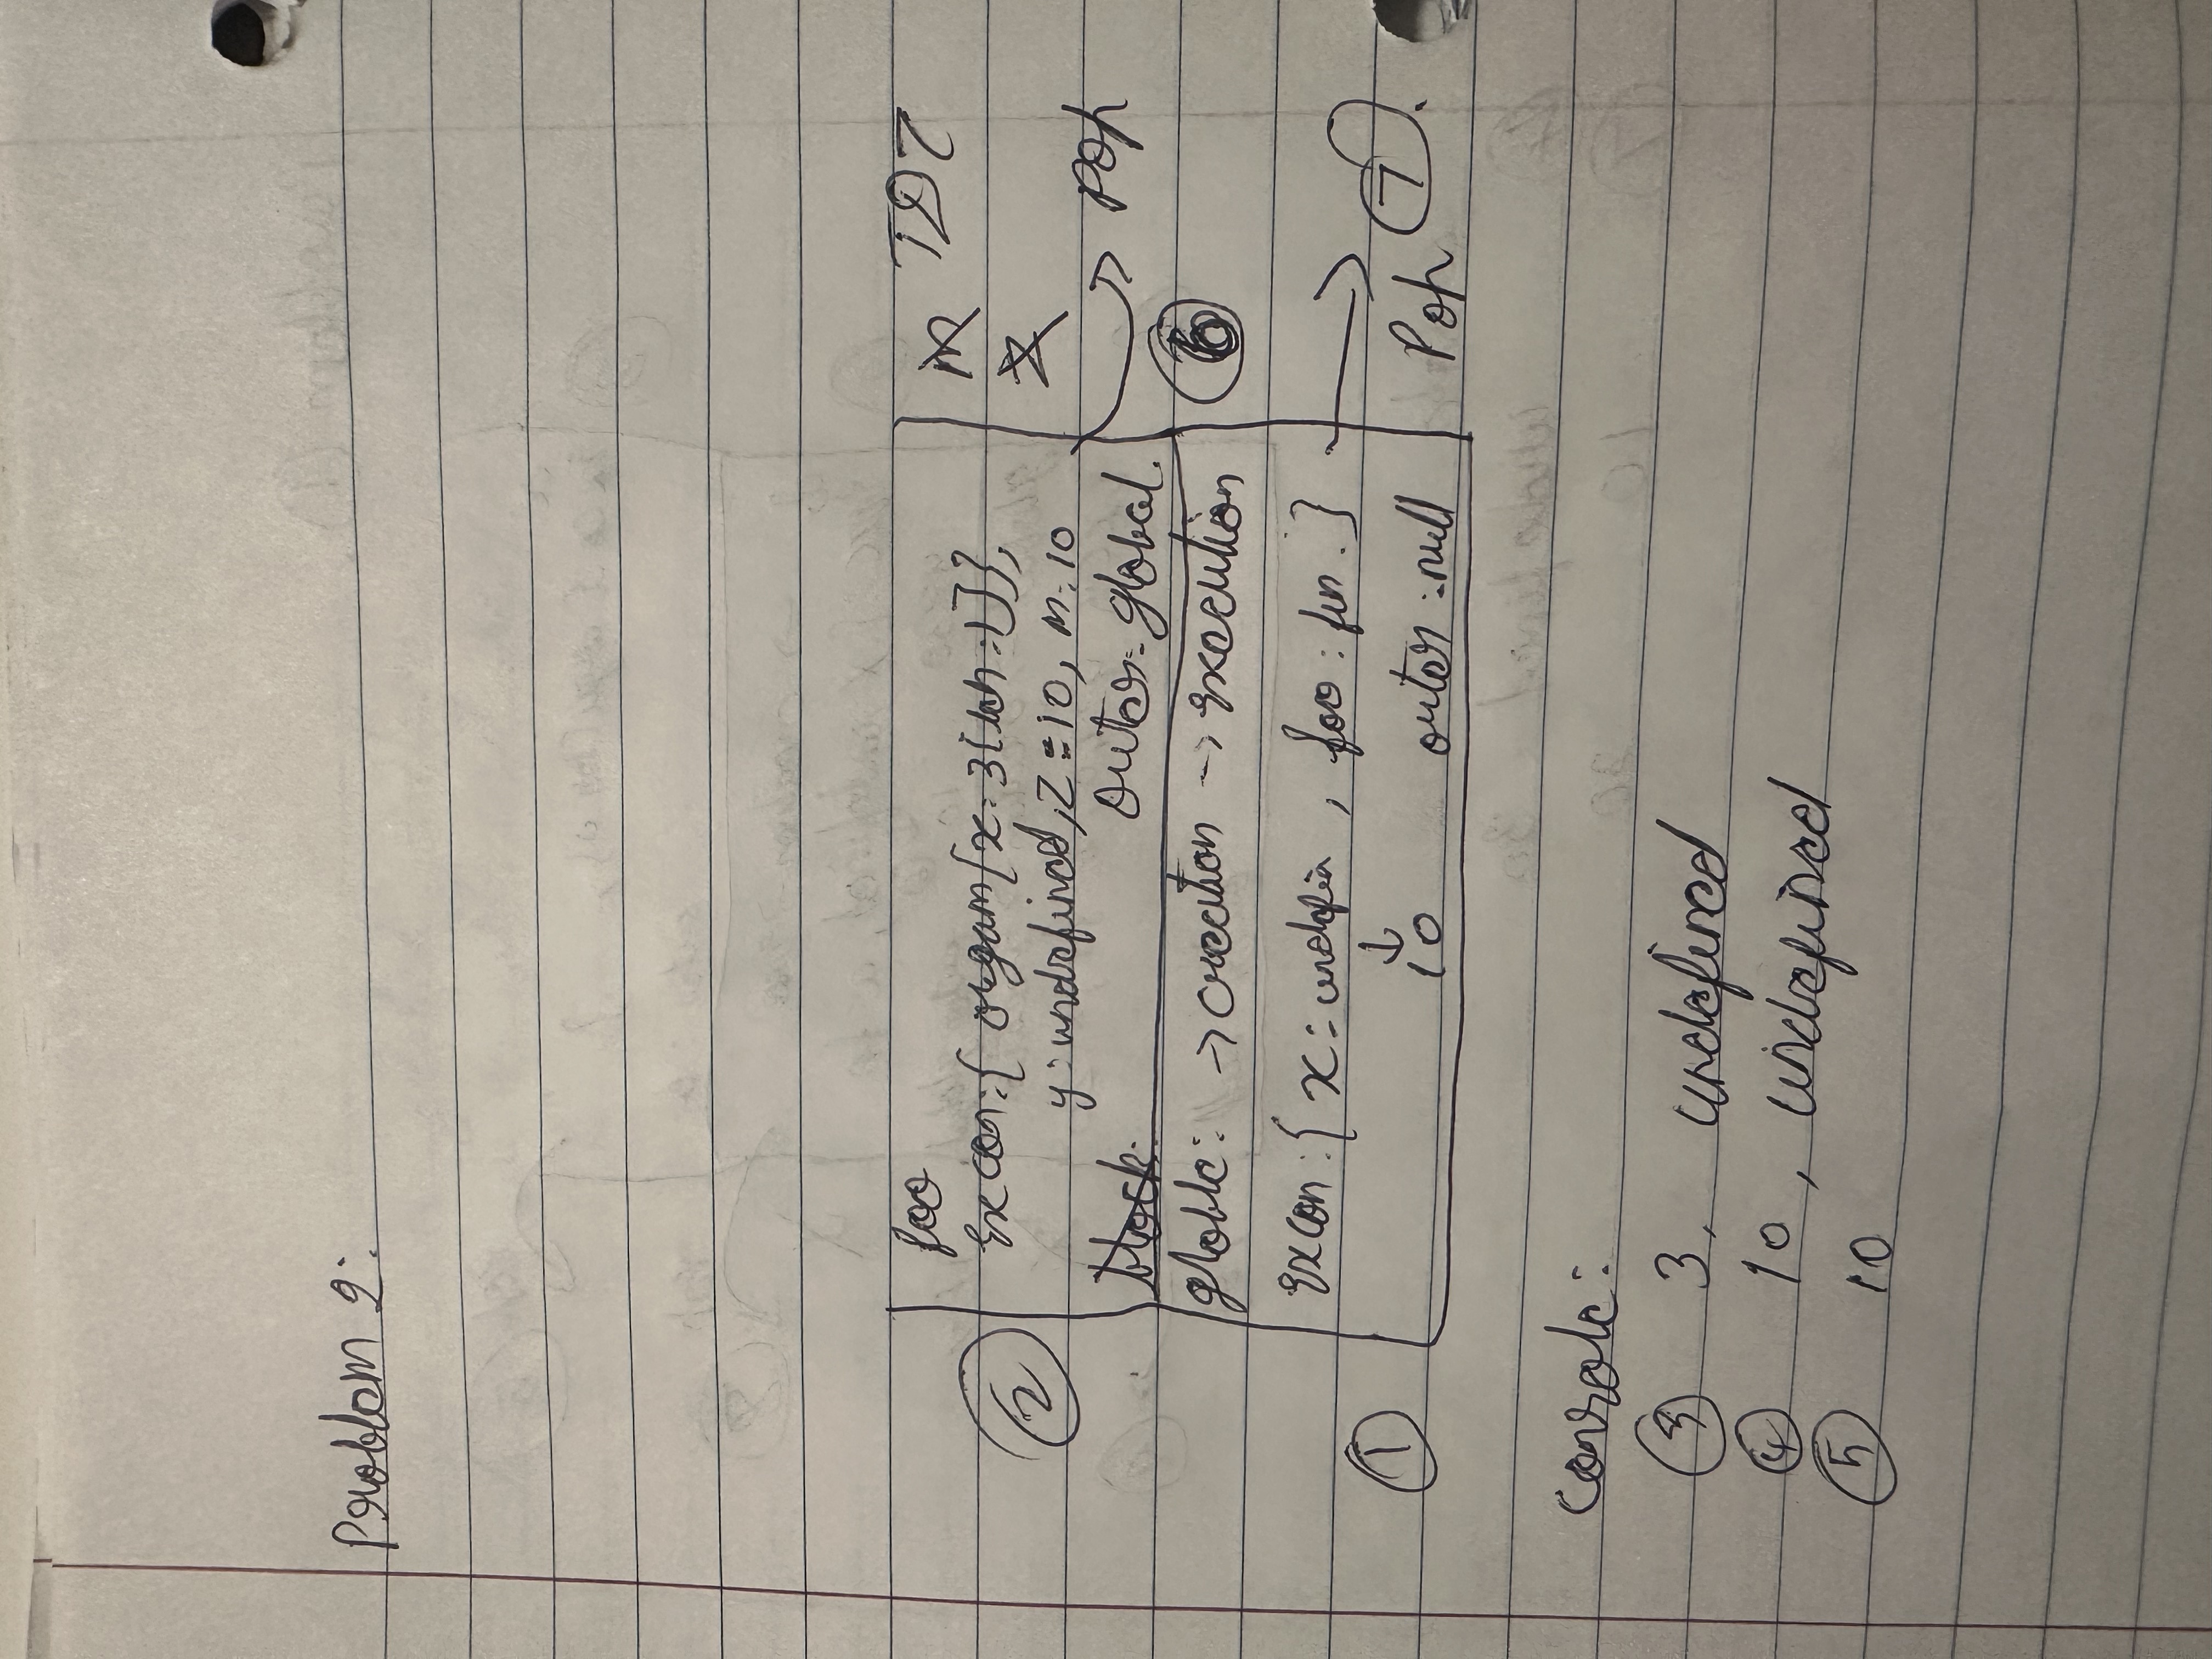 Problem 2:
foo
m TDZ
②
Excon:{ argum{x:3{len:1}},
z
y:undefined, z=10, m:10
Pop
block: outer: global.
globle: → creation → execution
6
Excon:{ x: undefin , foo: fun. }
①
↓
10 outer: null
Pop ⑦.
console:
③ 3, undefined
④ 10, undefined
⑤ 10